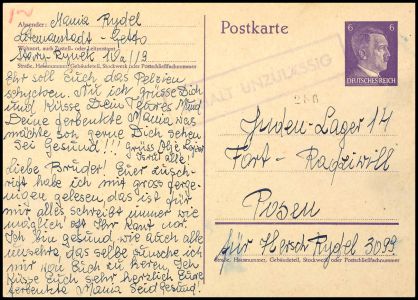 Absender: Mania Rydel
Litzmannstadt-Getto
Wohnort, auch Zustell- oder Leitpostamt
Straße, Hausnummer, Gebäudeteil, Stockwerk oder Postschließfachnummer
Ihr soll Euch das
schycken. Nu ich grüsse Dich
und Küsse Dein Mund
Deine Mania was
möchte dich gerne Dich sehen
Sei Gesund!!!
Grüss Alle
liebe Bruder! Eier zusch-
rift habe ich mit gross
nigen gelesen, das ist für
mir alles schreibt immer wie
möglich ist Ihr kant nor.
Ich bin gesund, wie auch alle
unsehre das selbe wünsche ich
mir von Euch zu hören. Ich
Küsse Euch sehr herzlich Eure
Mania Seid Gesund!
Postkarte
6 6
DEUTSCHES REICH
UNZULÄSSIG
Juden-Lager 14
Fort-Radziwill
Posen
für Hersch Rydel 3099
Straße, Hausnummer, Gebäudeteil, Stockwerk oder Postschließfachnummer